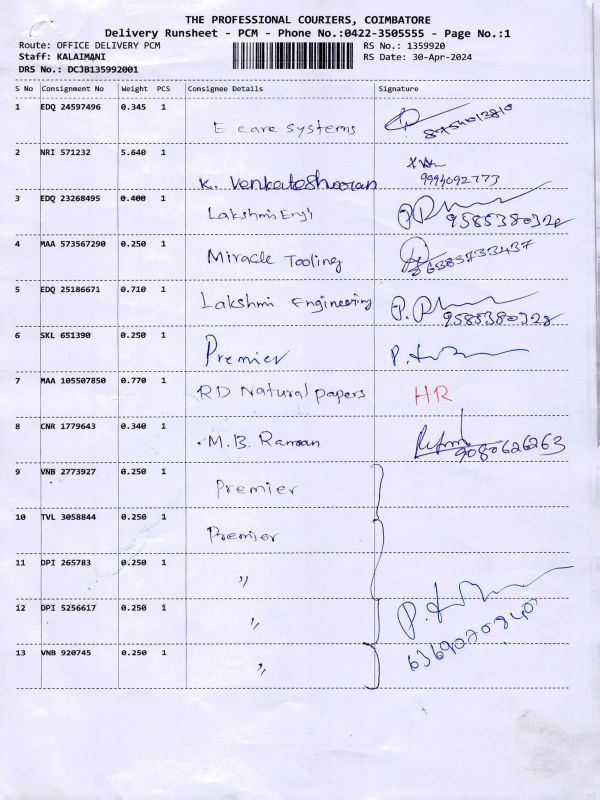 THE PROFESSIONAL COURIERS, COIMBATORE
Delivery Runsheet - PCM - Phone No.:0422-3505555 - Page No.:1
Route: OFFICE DELIVERY PCM RS No.: 1359920
Staff: KALAIMANI RS Date: 30-Apr-2024
DRS No.: DCJB135992001
S No Consignment No Weight PCS Consignee Details Signature
1 EDQ 24597496 0.345 1 E care systems
2 NRI 571232 5.640 1 K. Venkateshwaran 9994092773
3 EDQ 23268495 0.400 1 Lakshmi Eng'g 9585380328
4 MAA 573567290 0.250 1 Miracle Tooling
5 EDQ 25186671 0.710 1 Lakshmi Engineering 9585380328
6 SKL 651390 0.250 1 Premier
7 MAA 105507850 0.770 1 RD Natural papers HR
8 CNR 1779643 0.340 1 M.B. Raman 9080626263
9 VNB 2773927 0.250 1 Premier
10 TVL 3058844 0.250 1 Premier
11 DPI 265783 0.250 1 "
12 DPI 5256617 0.250 1 "
13 VNB 920745 0.250 1 "